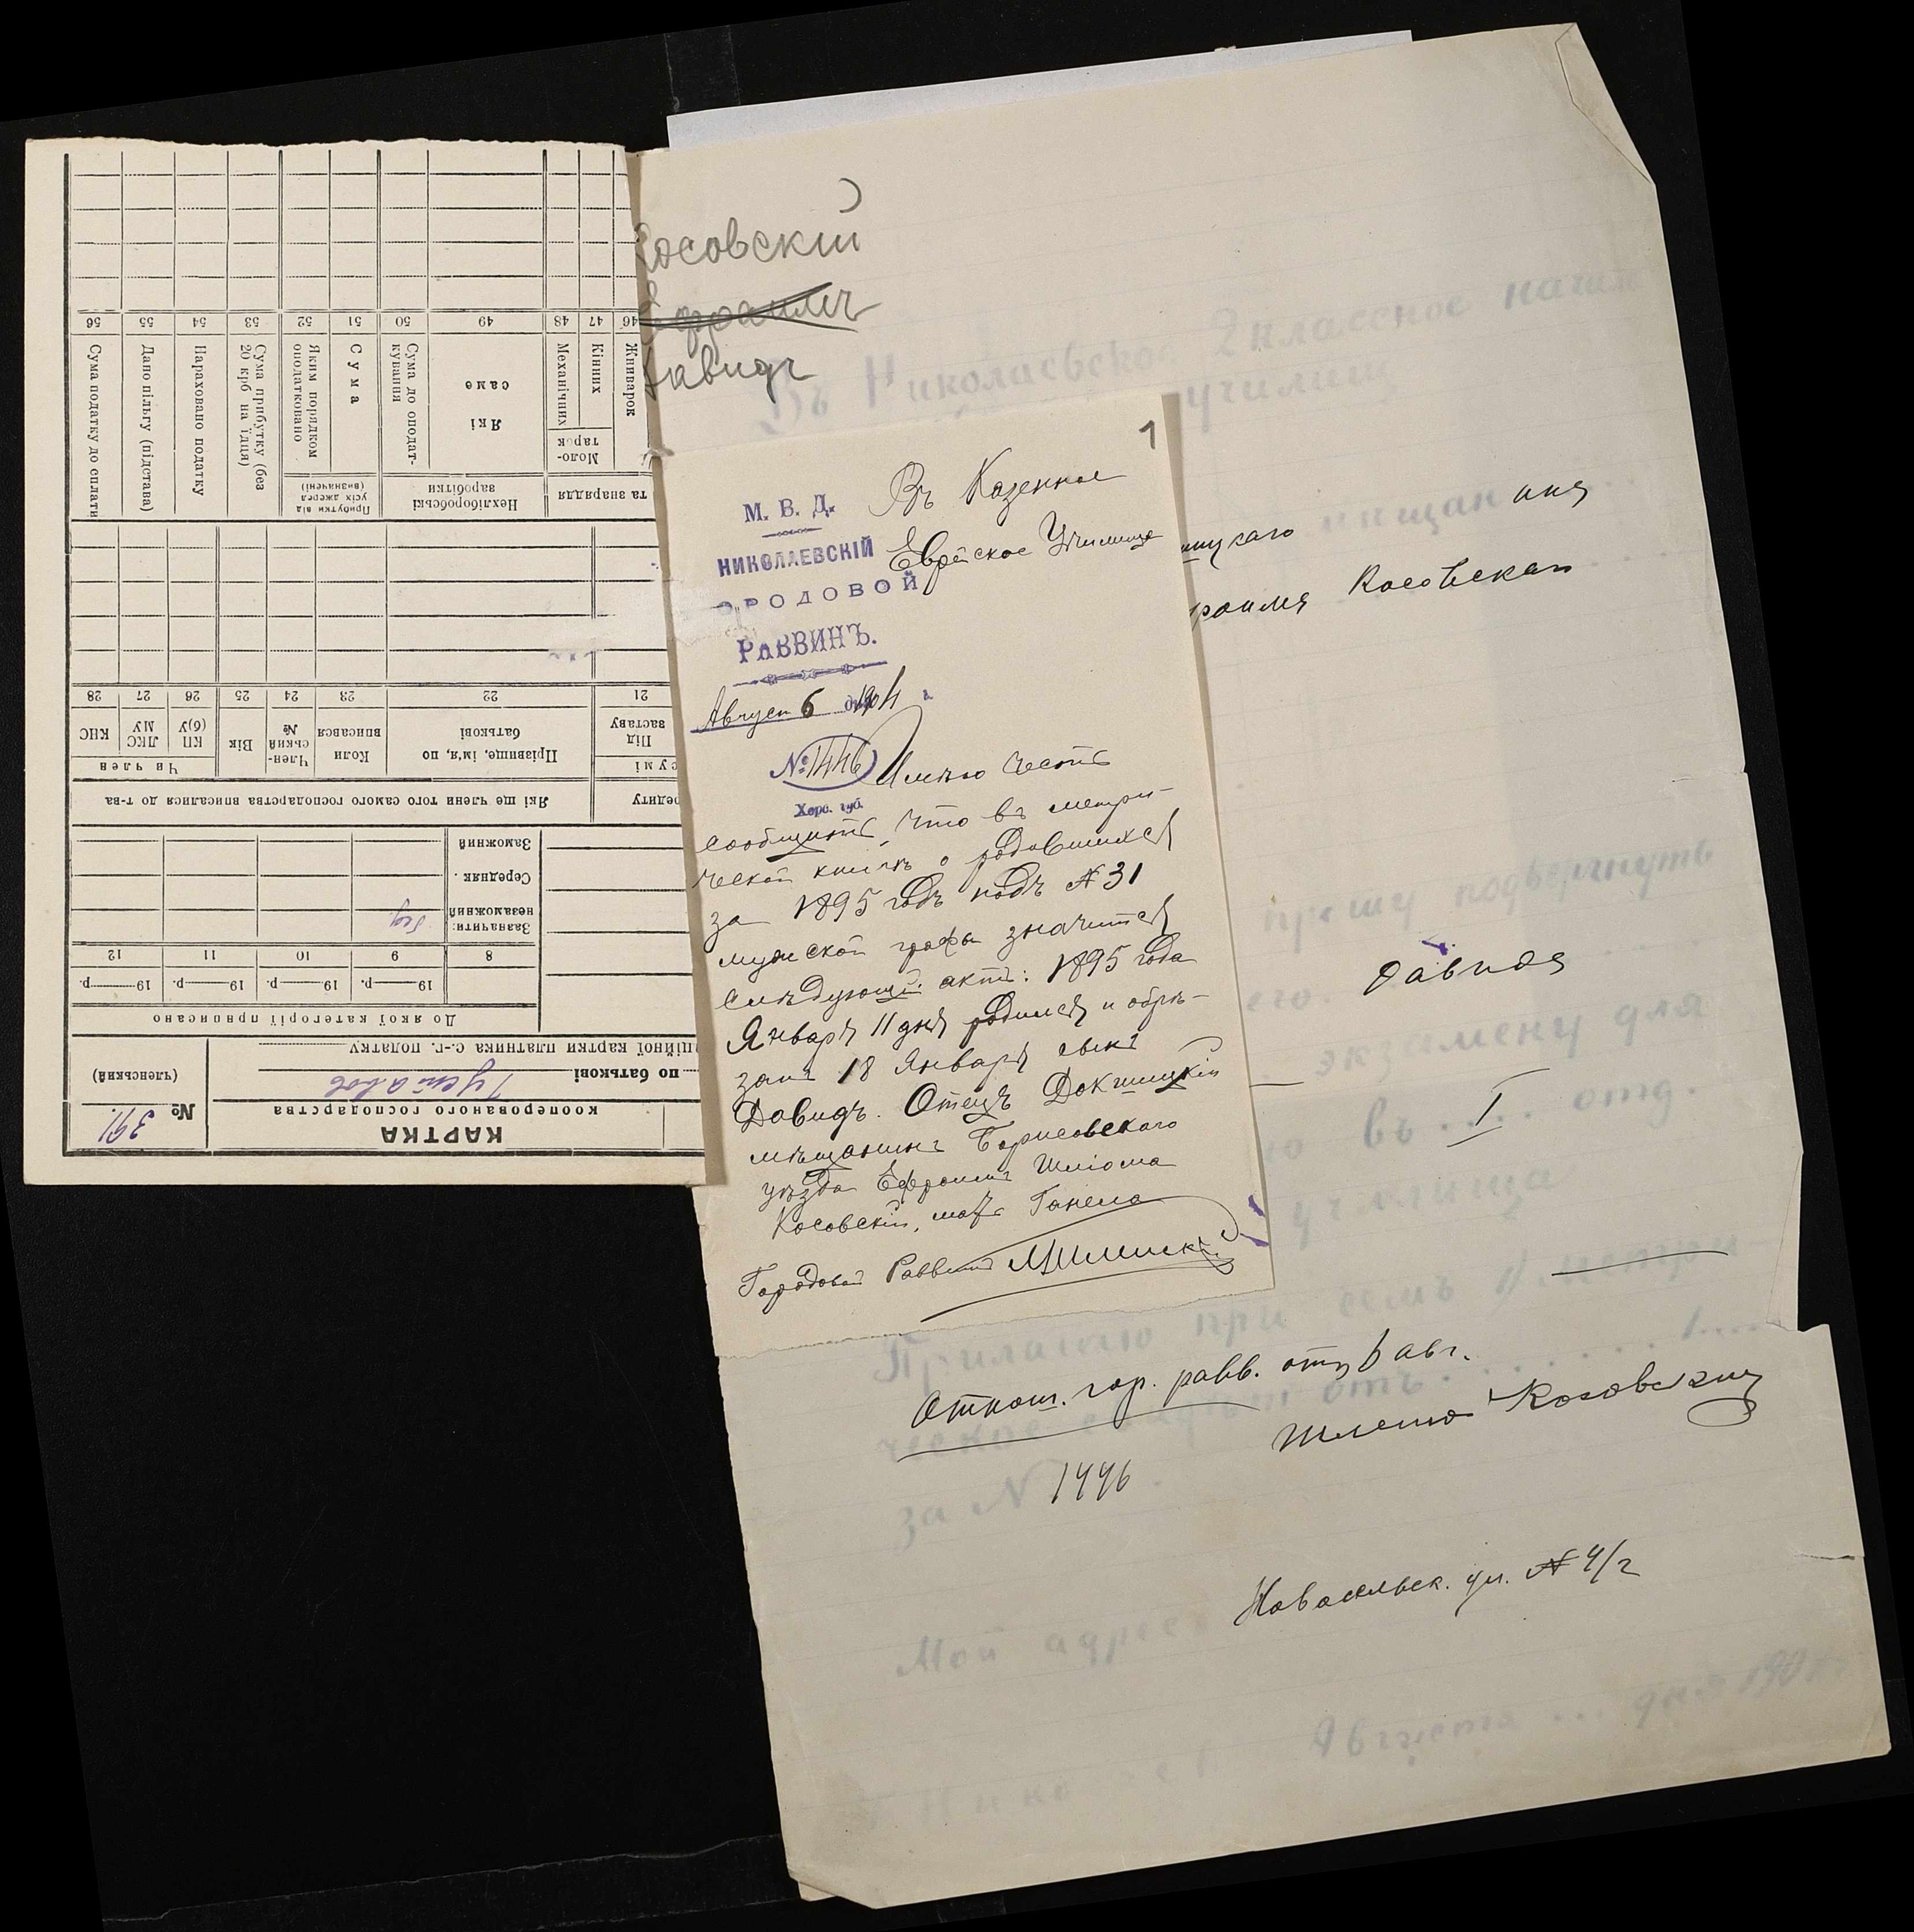 Косовскій
Ефраимъ
Давидъ
Въ Николаевское 2 классное начал
училищ
мещан ина
ицкаго
раима Косовскаго
прошу подвергнуть
его Давида
экзамену для
въ I отд.
училища
Прилагаю при семъ метри
ческое отъ
Отнош. гор. равв. отъ 6 авг.
за № 1446
Шлема Косовскій
Мой адресъ Новосельск. ул. № 4/2
Августа ... дня 1904
1
М. В. Д.
НИКОЛАЕВСКІЙ
ОРОДОВОЙ
РАВВИНЪ.
Август 6 дня 1904 г.
№ 1446
Херс. губ.
Въ Казенное
Еврейское Училище
Имѣю честь
сообщить, что въ метри-
ческой книгѣ о родившихся
за 1895 годъ подъ № 31
мужской графы значится
слѣдующій актъ: 1895 года
Января 11 дня родился и обрѣ-
занъ 18 Января сынъ
Давидъ. Отецъ Докшицкій
мѣщанинъ Борисовскаго
уѣзда Ефраимъ Шліома
Косовскій, мать Ганела
Городовой Раввинъ
КАРТКА
кооперованого господарства
№ 391
(членський)
по батькові Густавов
ційної картки платника с.-г. податку
До якої категорії приписано
19 р. 19 р. 19 р. 19 р.
8 9 10 11 12
Зазначити:
незаможний
Середняк
Заможний
редиту
Які ще члени того самого господарства вписалися до т-ва
сумі
Під заставу
Прізвище, ім'я, по батькові
Коли вписався
Член-ський №
Вік
Чи член
КП (б)У
ЛКС МУ
КНС
21 22 23 24 25 26 27 28
та знаряддя
Нехліборобські заробітки
Прибутки від усіх джерел (визначені)
Жниварок
Моло-тарок
Кінних
Механічних
Які саме
Сума до оподат-кування
Сума
Яким порядком оподатковано
Сума прибутку (без 20 крб на їдця)
Нараховано податку
Дано пільгу (підстава)
Сума податку до сплати
46 47 48 49 50 51 52 53 54 55 56